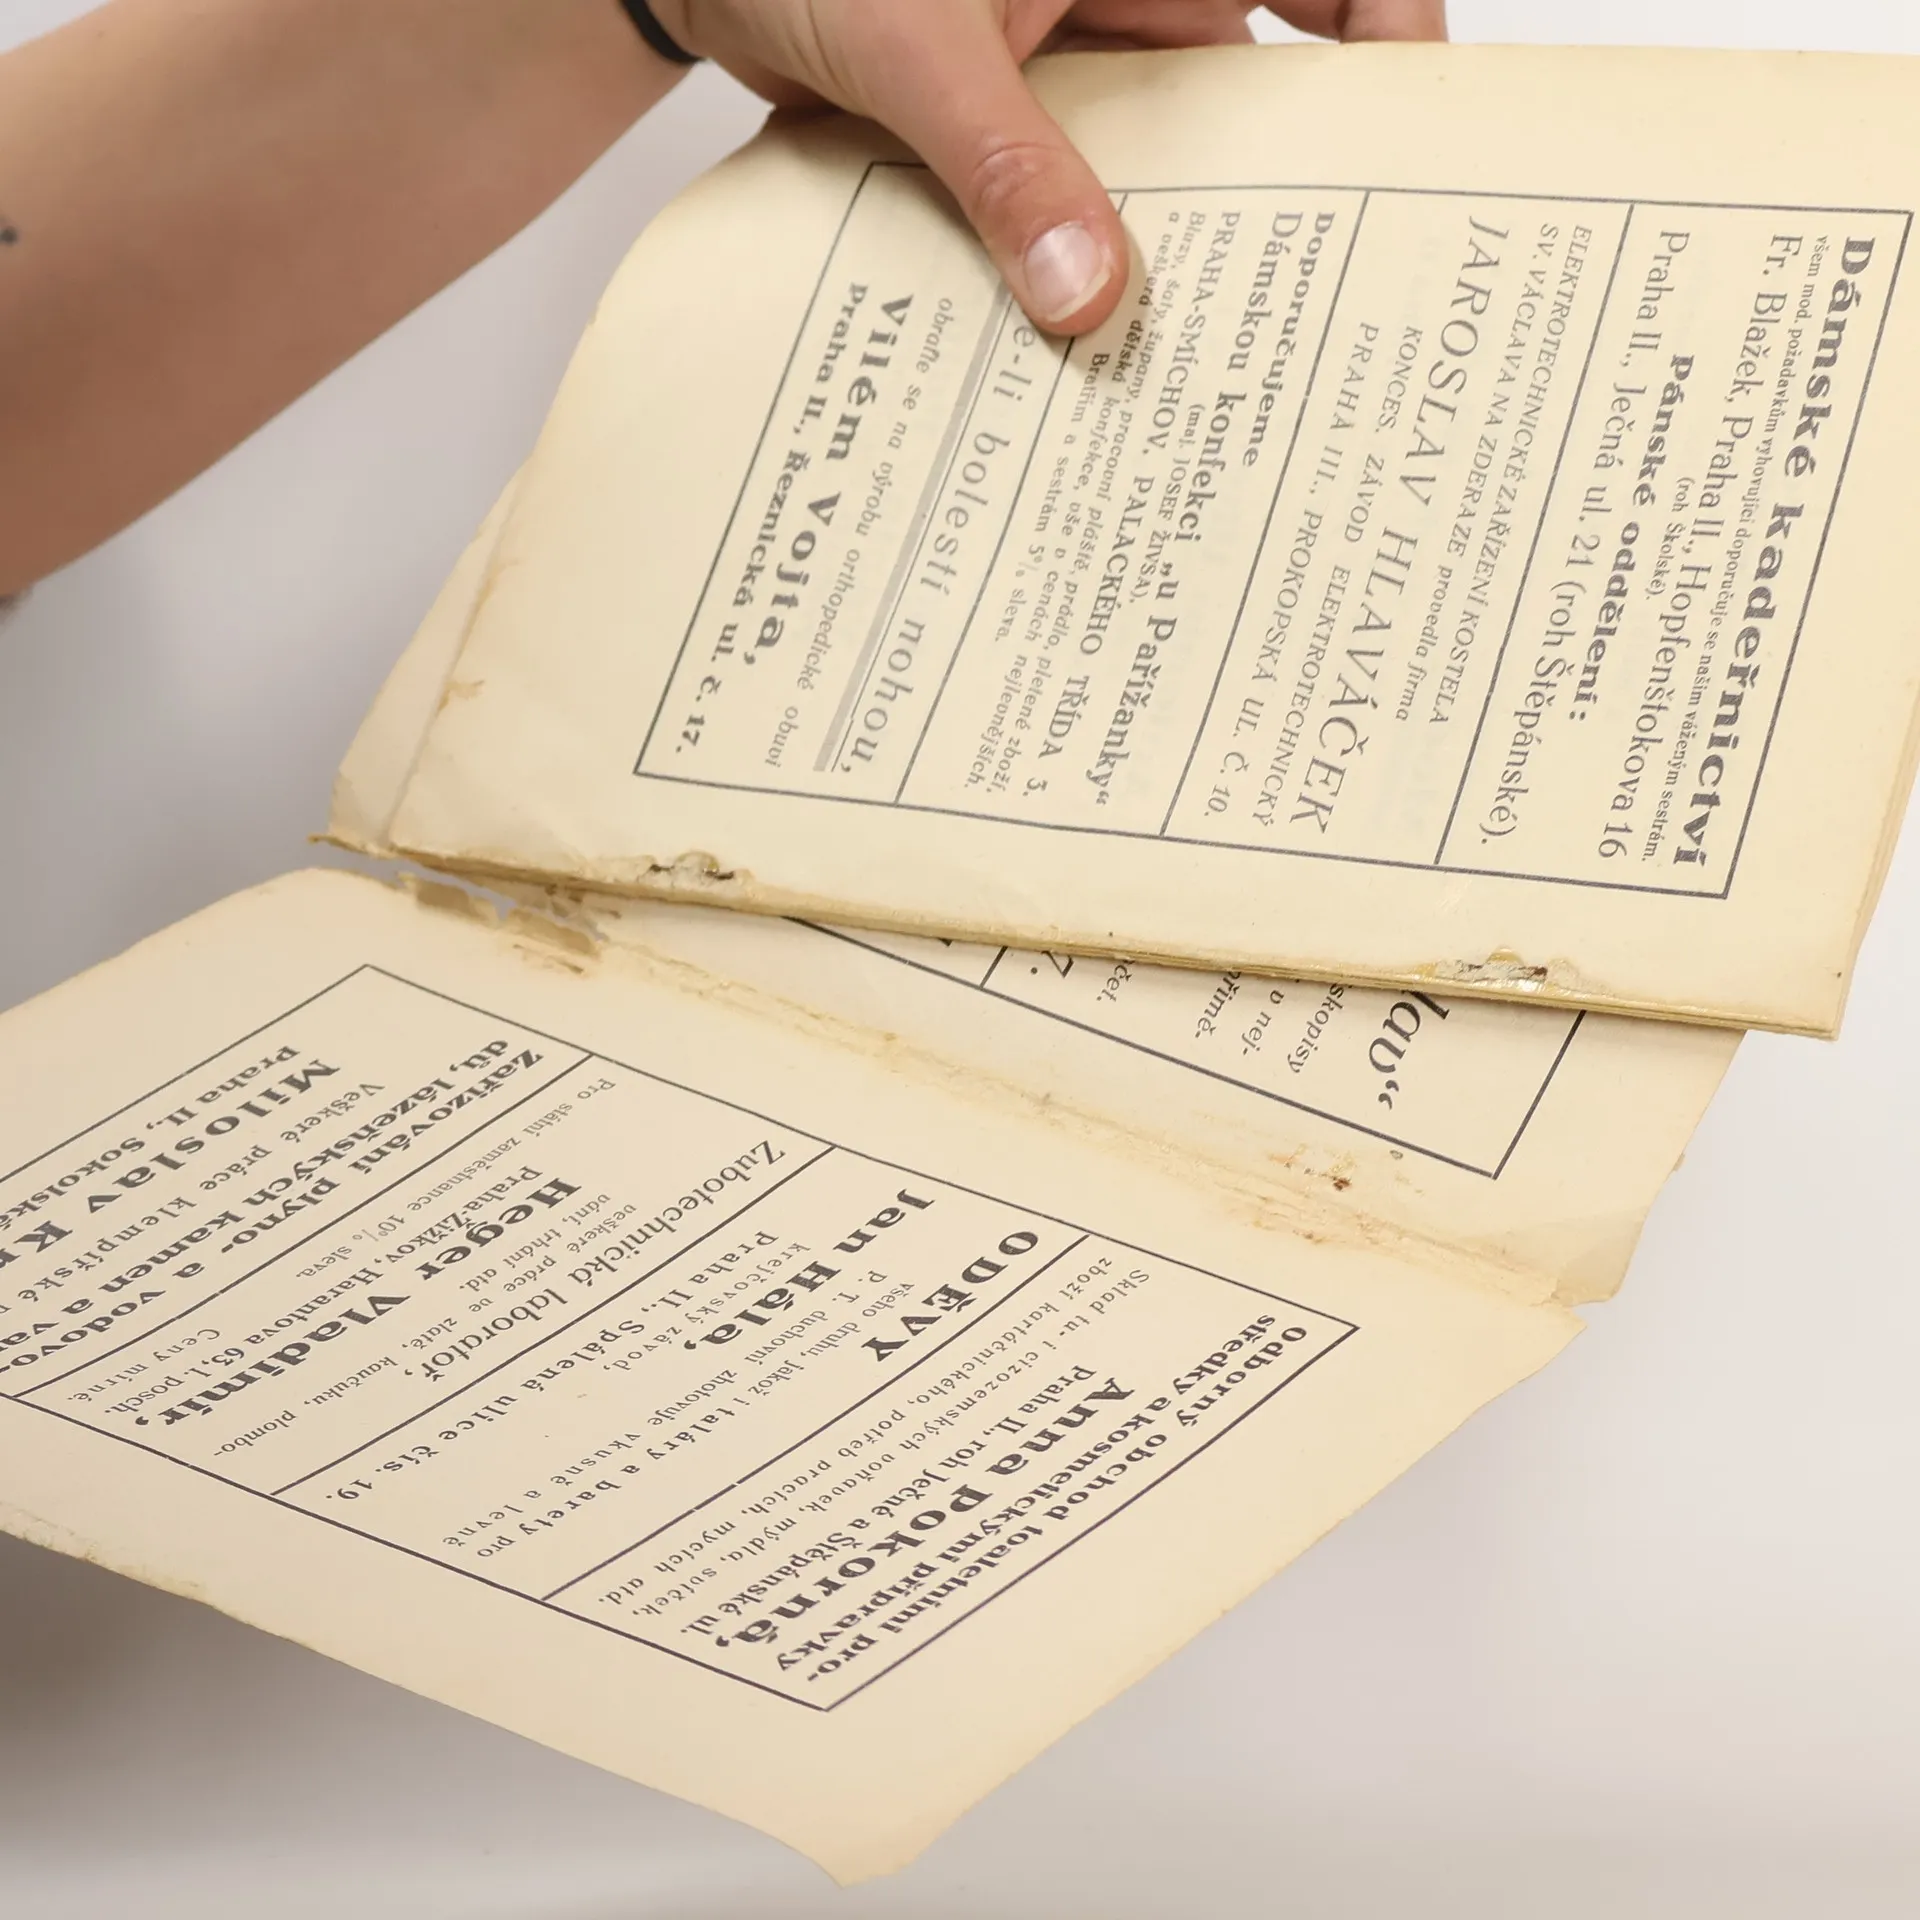 Dámské kadeřnictví
všem mod. požadavkům vyhovující doporučuje se našim váženým sestrám.
Fr. Blažek, Praha II., Hopfenštokova 16
(roh Školské).
Pánské oddělení:
Praha II., Ječná ul. 21 (roh Štěpánské).
ELEKTROTECHNICKÉ ZAŘÍZENÍ KOSTELA
SV. VÁCLAVA NA ZDERAZE provedla firma
JAROSLAV HLAVÁČEK
KONCES. ZÁVOD ELEKTROTECHNICKÝ
PRAHA III., PROKOPSKÁ UL. Č. 10.
Doporučujeme
Dámskou konfekci „u Pařížanky“
(maj. JOSEF ŽIVSA),
PRAHA-SMÍCHOV, PALACKÉHO TŘÍDA 3.
Bluzy, šaty, župany, pracovní pláště, prádlo, pletené zboží,
a veškerá dětská konfekce, vše v cenách nejlevnějších.
Bratřím a sestrám 5% sleva.
e-li bolestí nohou,
obraťte se na výrobu orthopedické obuvi
Vilém Vojta,
Praha II., Řeznická ul. č. 17.
lav“
skopisy
v nej-
čet.
7.
Odborný obchod toaletními pro-
středky a kosmetickými přípravky
Anna Pokorná,
Praha II., roh Ječné a Štěpánské ul.
Sklad tu- i cizozemských voňavek, mýdla, svíček,
zboží kartáčnického, potřeb pracích, mycích atd.
ODĚVY
všeho druhu, jakož i taláry a barety pro
P. T. duchovní zhotovuje vkusně a levně
Jan Hála,
krejčovský závod,
Praha II., Spálená ulice čís. 19.
Zubotechnická laboratoř,
veškeré práce ve zlatě, kaučuku, plombo-
vání, trhání atd.
Heger Vladimír,
Praha-Žižkov, Harantova 63, I. posch.
Pro státní zaměstnance 10% sleva.
Ceny mírné.
Zařizování plyno- a vodovo-
dů, lázeňských kamen a va
Miloslav K
Veškeré práce klempířské
Praha II., Sokolská